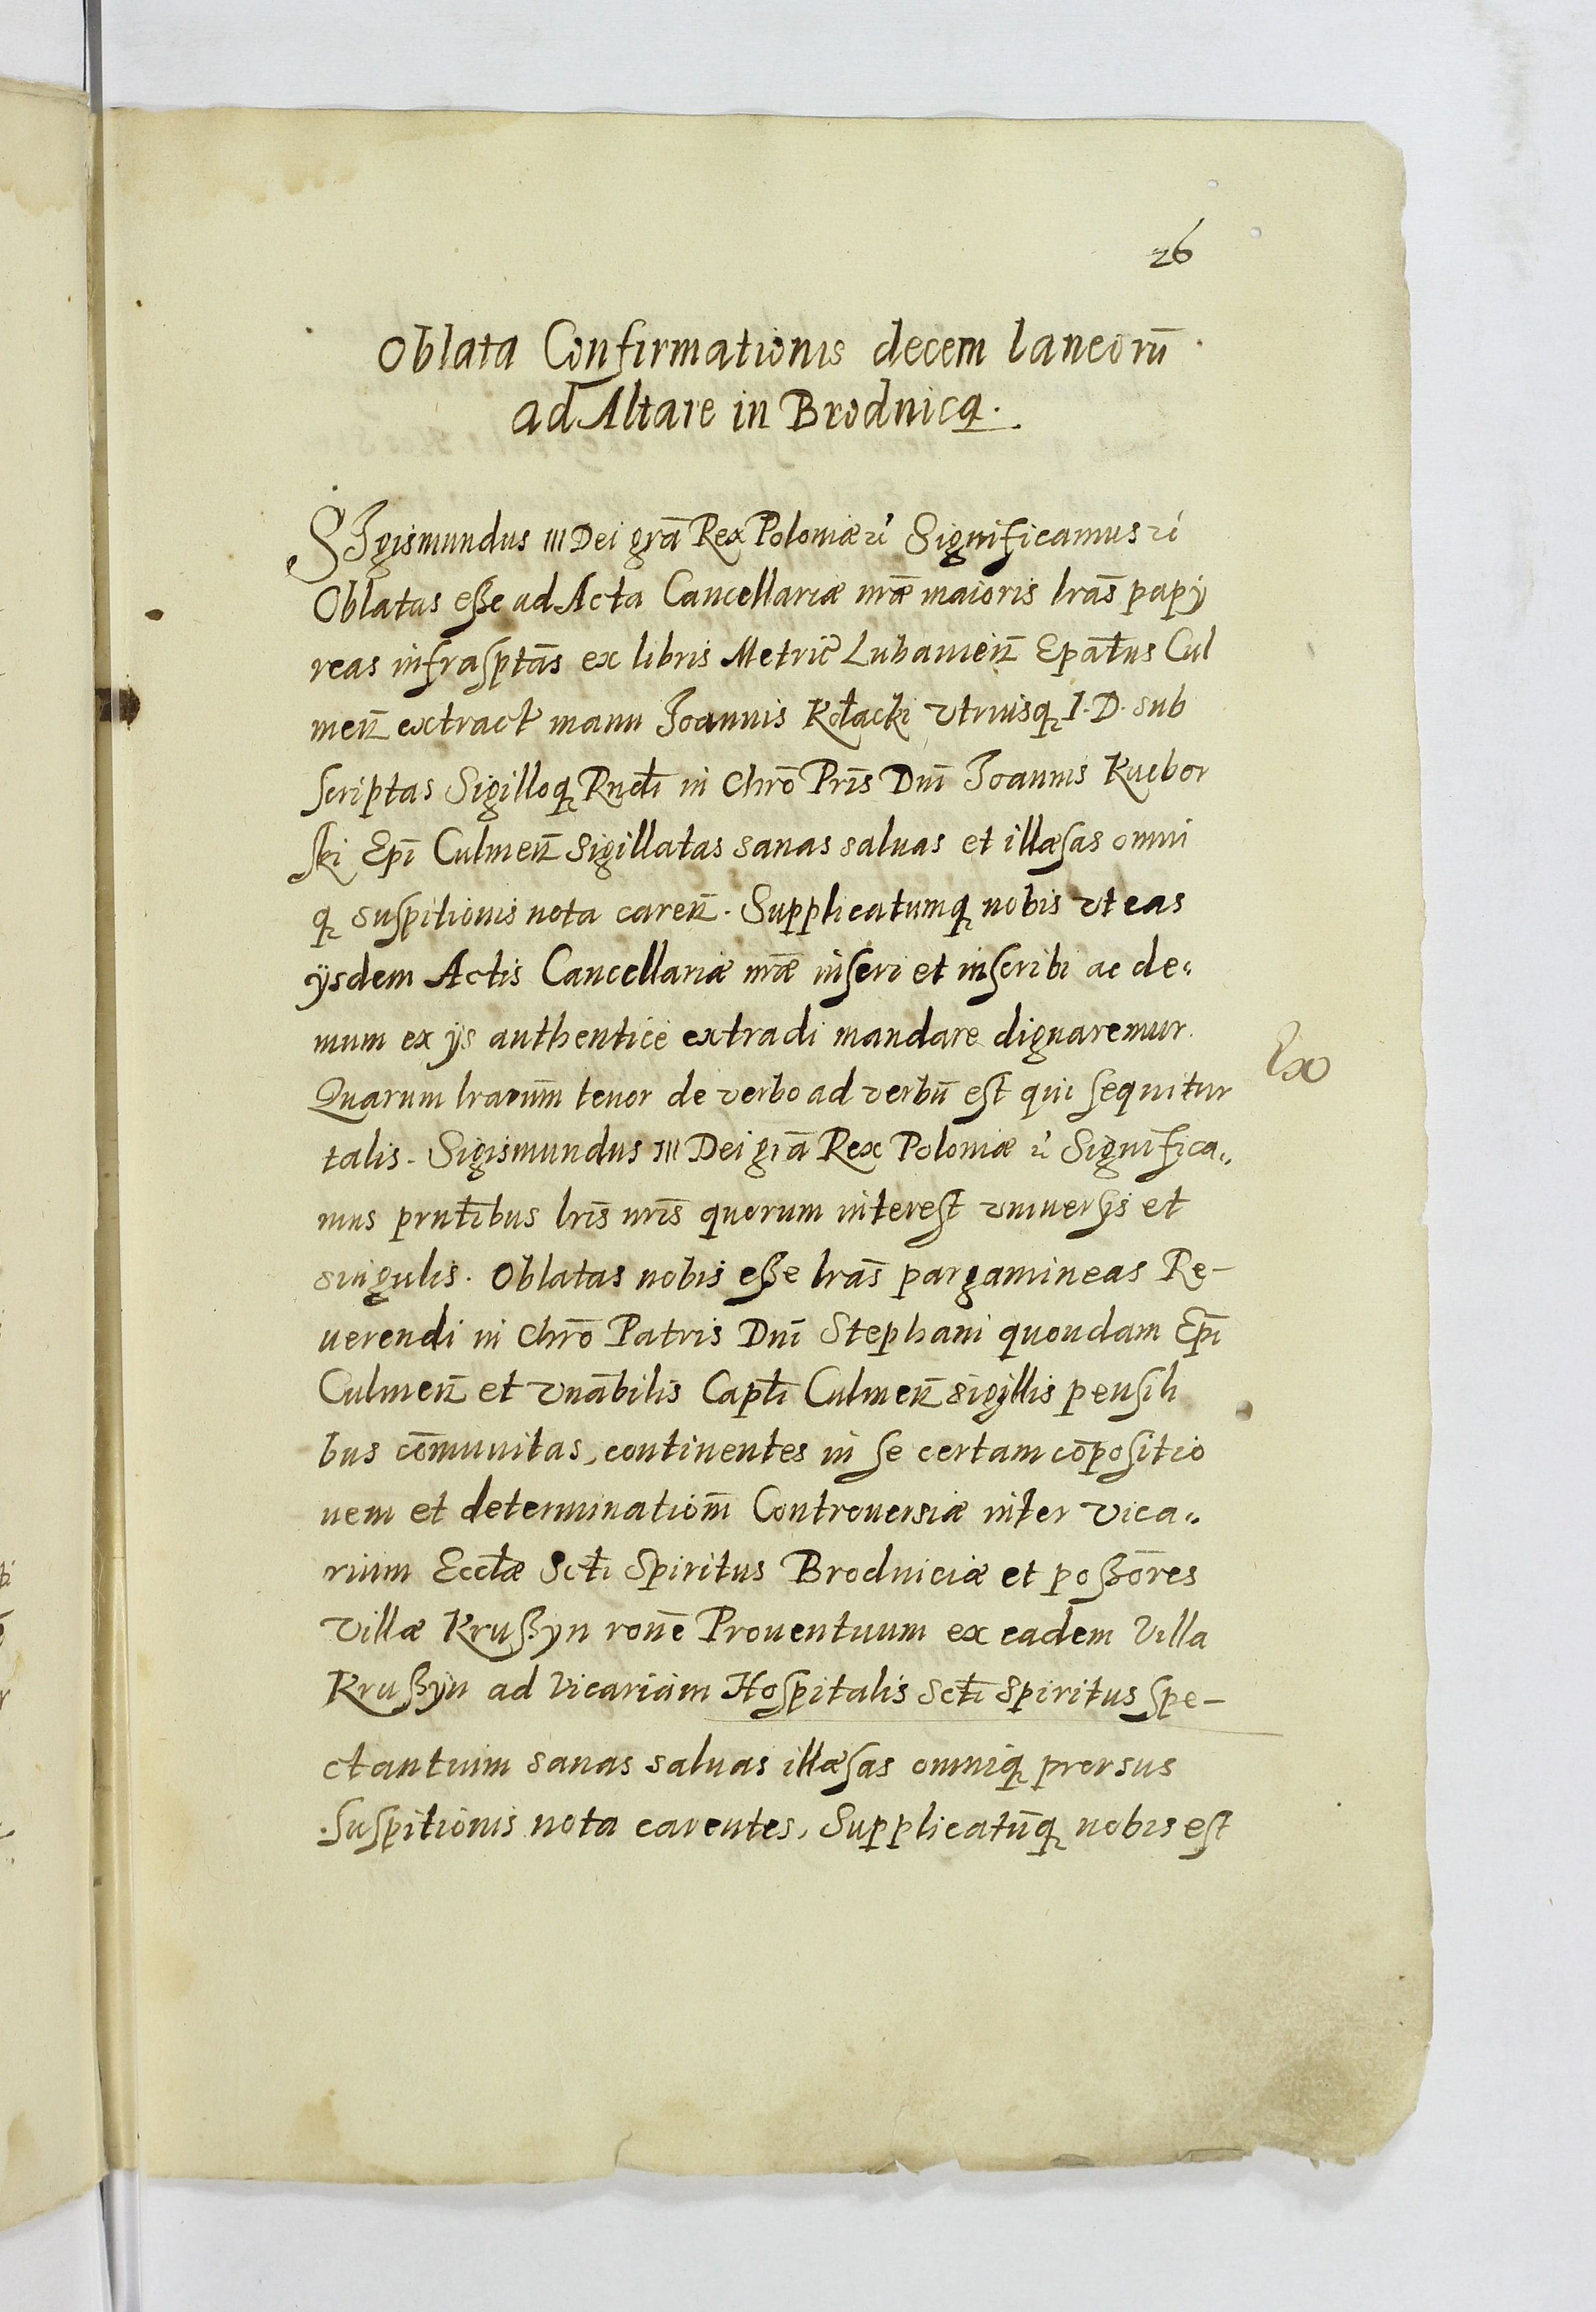 26
Oblata Confirmationis decem laneorū
ad Altare in Brodnicą.
SIgismundus III Dei grā Rex Poloniæ ⁊c̄ Significamus ⁊c̄
Oblatas eße ad Acta Cancellariæ nr̄æ maioris lrās papÿ
reas infrasptās ex libris Metric̄ Lubawieñ Epat̄us Cul
meñ extract̄ manu Joannis Kołacki vtriusq̨ I. D. sub
scriptas Sigilloq̨ Rnd̄i in Chrō Prīs Dnī Joannis Kucbor
ski Epī Culmeñ Sigillatas sanas saluas et illæsas omni
q̨ suspitionis nota careñ. Supplicatumq̨ nobis vt eas
ijsdem Actis Cancellariæ nr̄æ inseri et inscribi ac de„
mum ex ijs authenticè extradi mandare dignaremur.
Quarum lrarum̄ tenor de verbo ad verbū est qui sequitur
talis. Sigismundus III Dei grā Rex Poloniæ ⁊c̄ Significa„
mus prnt̄ibus lrīs nrīs quorum interest vniuersis et
singulis. Oblatas nobis eße lrās pargamineas Re-
uerendi in Chrō Patris Dnī Stephani quondam Epī
Culmeñ et Vnābilis Capłi Culmeñ sigillis pensili
bus cōmunitas, continentes in se certam cōpositio
nem et determinatiom̄ Controuersiæ inter Vica„
rium Eccłæ Sct̄i Spiritus Brodniciæ et poßōres
Villæ Krußyn ronē Prouentuum ex eadem Villa
Krußyn ad Vicariam Hospitalis Sct̄i Spiritus spe-
ctantium sanas saluas illæsas omniq̨ prorsus
suspitionis nota carentes, Supplicatūq̨ nobis est